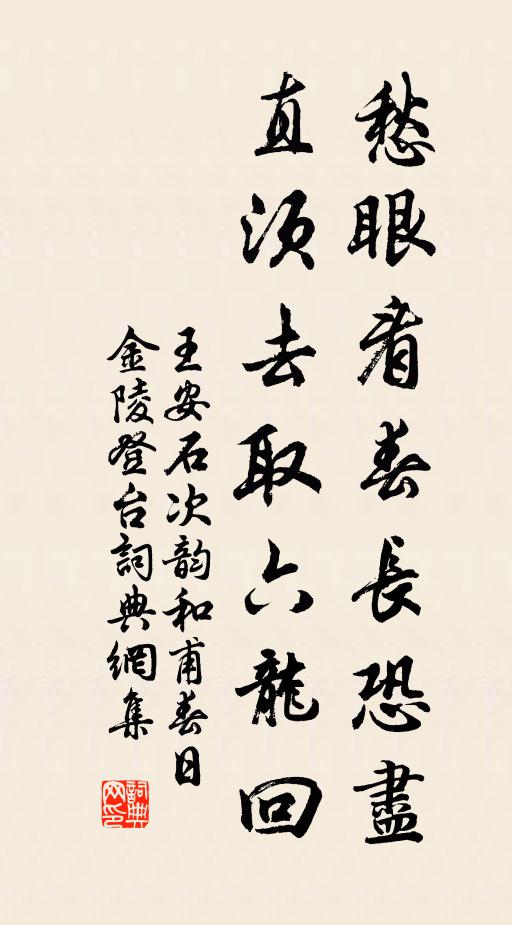 愁眼看春長恐盡
直須去取六龍回
王安石次韵和甫春日
金陵登台詞典網集
詞典网印